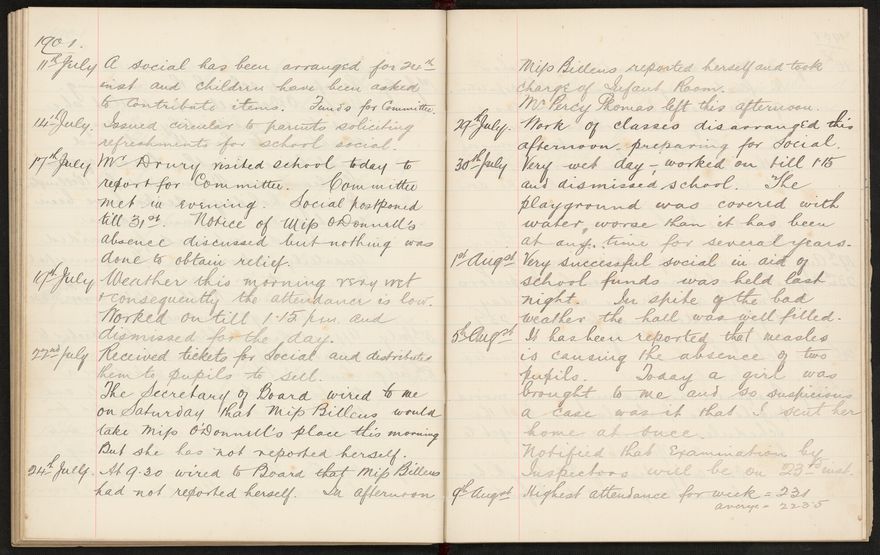 1901.
11th July A social has been arranged for 26th
inst and children have been asked
to contribute items. Funds for Committee.
14th July. Issued circular to parents soliciting
refreshments for school social.
17th July Mr Drury visited school today to
report for Committee. Committee
met in evening. Social postponed
till 31st. Notice of Miss O'Donnell's
absence discussed but nothing was
done to obtain relief.
July Weather this morning very wet
& consequently the attendance is low.
Worked on till 1.15 p.m. and
dismissed for the day.
22nd July Received tickets for Social and distributed
them to pupils to sell.
The Secretary of Board wired to me
on Saturday that Miss Billens would
take Miss O'Donnell's place this morning
But she has not reported herself.
24th July. At 9.20 wired to Board that Miss Billens
had not reported herself. In afternoon
Miss Billens reported herself and took
charge of Infant Room.
Mr Percy Thomas left this afternoon.
29th July. Work of classes disarranged this
afternoon, preparing for Social.
30th July Very wet day – worked on till 1.15
and dismissed school. The
playground was covered with
water, worse than it has been
at any time for several years.
1st Augst Very successful social in aid of
school funds was held last
night. In spite of the bad
weather the hall was well filled.
5th Augst It has been reported that measles
is causing the absence of two
pupils. Today a girl was
brought to me and so suspicious
a case was it that I sent her
home at once.
Notified that Examination by
Inspectors will be on 23rd inst.
9th Augst Highest attendance for week = 231
average = 223.5